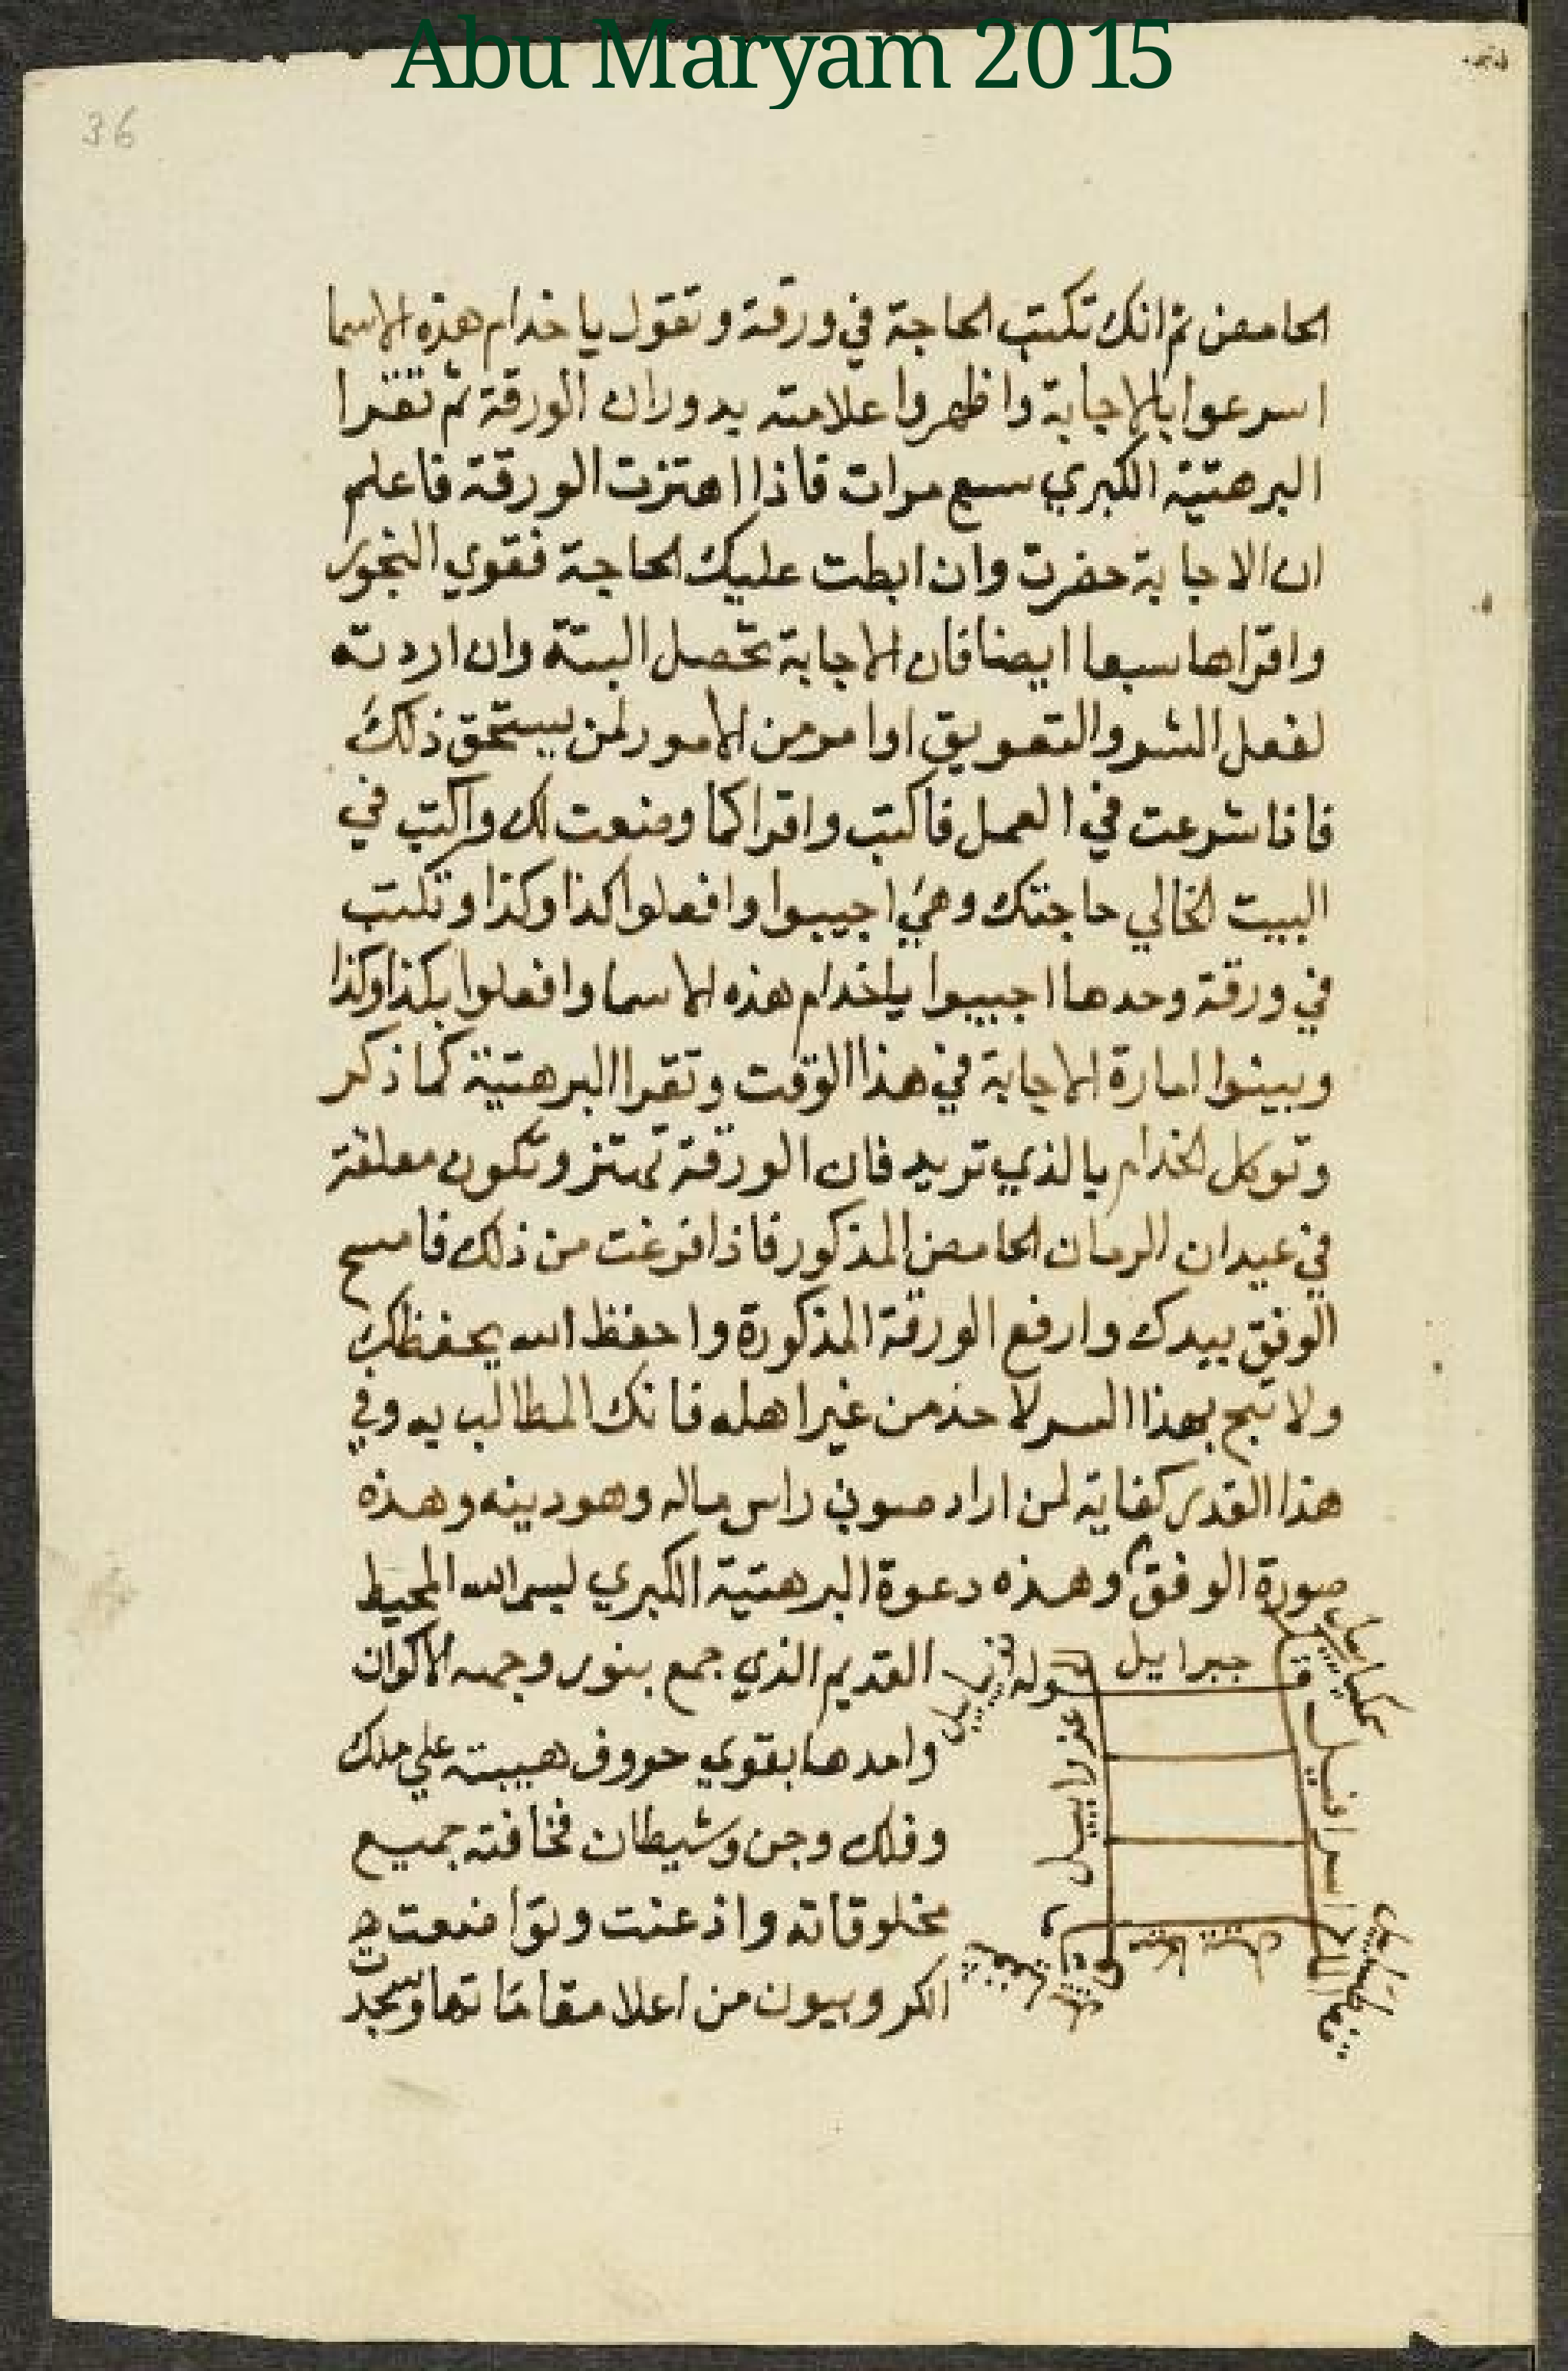 Abu Maryam 2015
36
الحامض ثم انك تكتب الحاجة في ورقة وتقول يا خدام هذه الاسما
اسرعوا بالاجابة واظهروا علامته بدوران الورقة ثم تقرا
البرهتية الكبري سبع مرات فاذا اهتزت الورقة فاعلم
ان الاجابة حضرت وان ابطت عليك الحاجة فقوي البخور
واقراها سبعا ايضا فان الاجابة تحصل البتة وان اردته
لفعل الشر والتعويق او امر من الامور لمن يستحق ذلك
فاذا شرعت في العمل فاكتب واقرا كما وضعت لك واكتب في
البيت الخالي حاجتك وهي اجيبوا وافعلوا كذا وكذا وتكتب
في ورقة وحدها اجيبوا يا خدام هذه الاسما وافعلوا بكذا وكذا
وبينوا امارة الاجابة في هذا الوقت وتقرا البرهتية كما ذكر
وتوكل الخدام بالذي تريد فان الورقة تهتز وتكون معلقة
في عيدان الرمان الحامض المذكور فاذا فرغت من ذلك فامسح
الوفق بيدك وارفع الورقة المذكورة واحفظ الله يحفظك
ولا تبح بهذا السر لاحد من غير اهله فانك المطالب به وفي
هذا القدر كفاية لمن اراد صون راس ماله وهو دينه وهذه
صورة الوفق وهذه دعوة البرهتية الكبري بسم الله المحيط
القديم الذي جمع بنور وجهه الاكوان
وامدها بقوي حروف هيبته علي ملك
وفلك وجن وشيطان فخافته جميع
مخلوقاته واذعنت وتواضعت
الكروبيون من اعلا مقاماتها وسجدت
جبراييل
عزراييل
اسرافيل
قوله